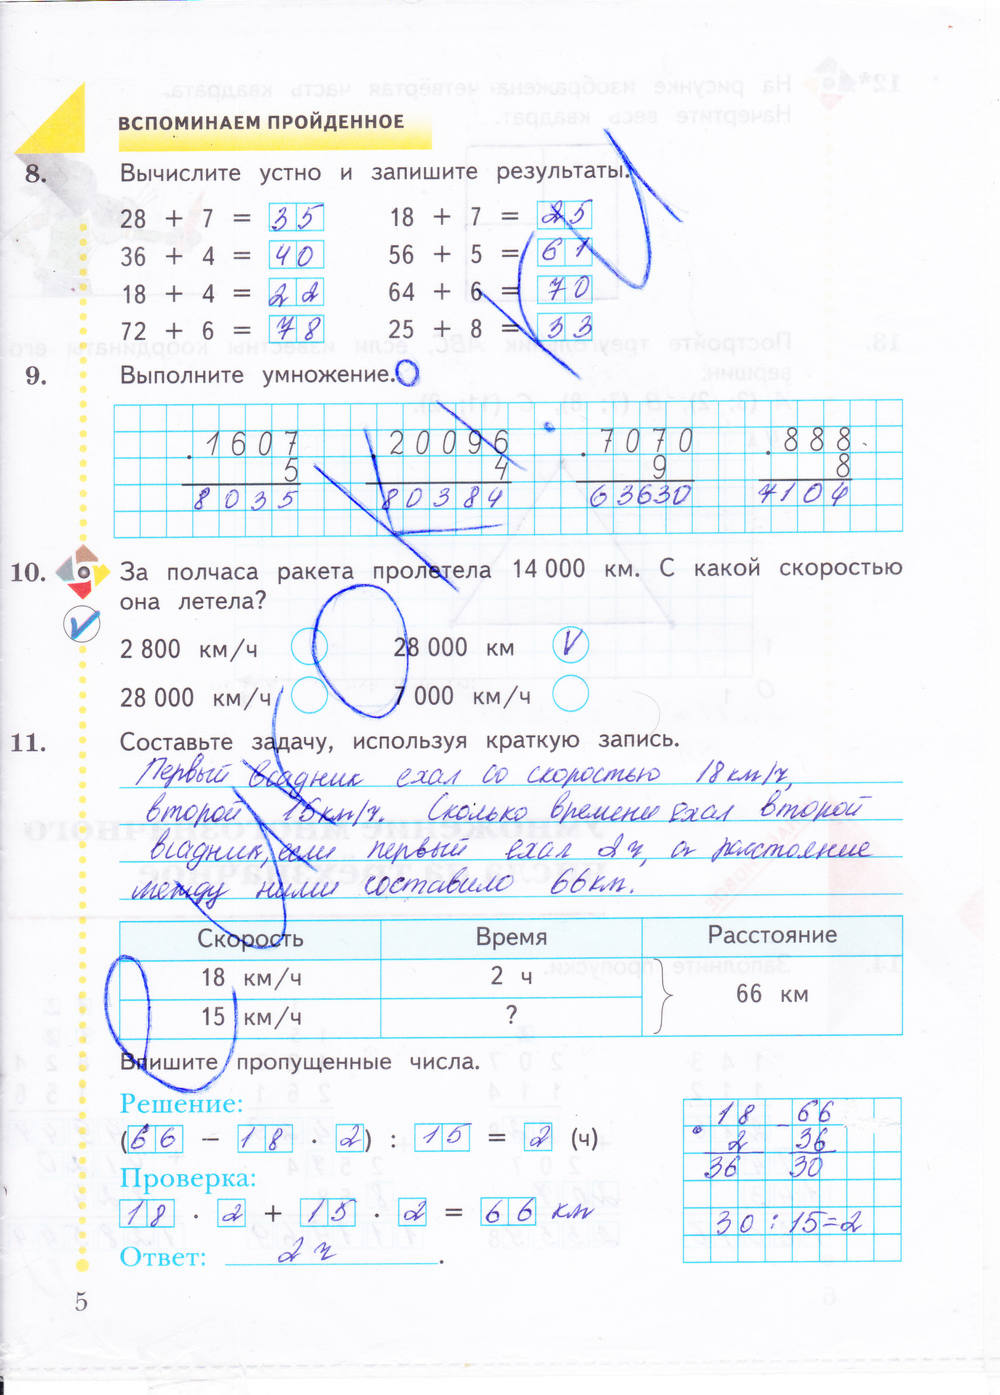 ВСПОМИНАЕМ ПРОЙДЕННОЕ
8. Вычислите устно и запишите результаты.
28 + 7 = 35 18 + 7 = 25
36 + 4 = 40 56 + 5 = 61
18 + 4 = 22 64 + 6 = 70
72 + 6 = 78 25 + 8 = 33
9. Выполните умножение.
1607 20096 7070 888
5 4 9 8
8035 80384 63630 7104
10. За полчаса ракета пролетела 14 000 км. С какой скоростью
она летела?
2 800 км/ч 28 000 км V
28 000 км/ч 7 000 км/ч
11. Составьте задачу, используя краткую запись.
Первый всадник ехал со скоростью 18 км/ч,
второй 15 км/ч. Сколько времени ехал второй
всадник, если первый ехал 2 ч, а расстояние
между ними составило 66 км.
Скорость Время Расстояние
18 км/ч 2 ч
66 км
15 км/ч ?
Впишите пропущенные числа.
Решение:
(66 − 18 · 2) : 15 = 2 (ч)
Проверка:
18 · 2 + 15 · 2 = 66 км
Ответ: 2 ч.
· 18 − 66
2 36
36 30
30 : 15 = 2
5